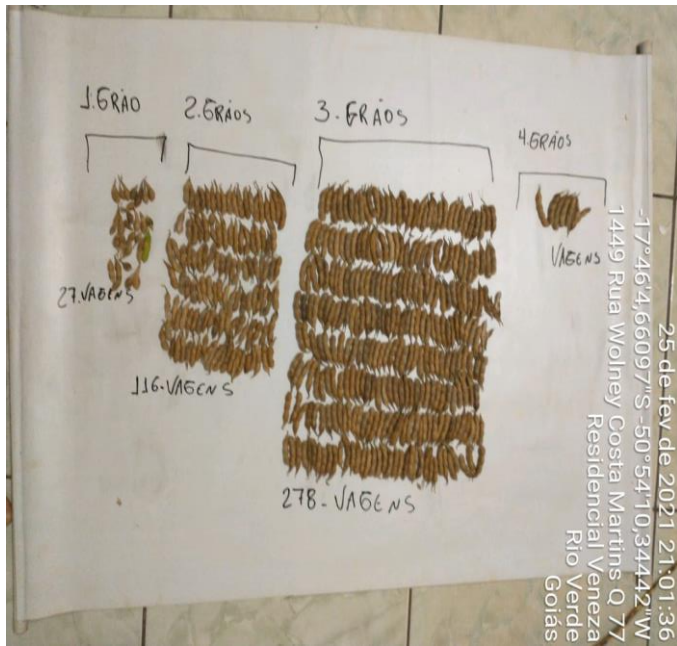 1.GRÃO
2.GRÃOS
3.GRÃOS
4.GRÃOS
27.VAGENS
116-VAGENS
278-VAGENS
VAGENS
25 de fev. de 2021 21:01:36
-17°46'4,66097"S -50°54'10,34442"W
1449 Rua Wolney Costa Martins Q 77
Residencial Veneza
Rio Verde
Goiás